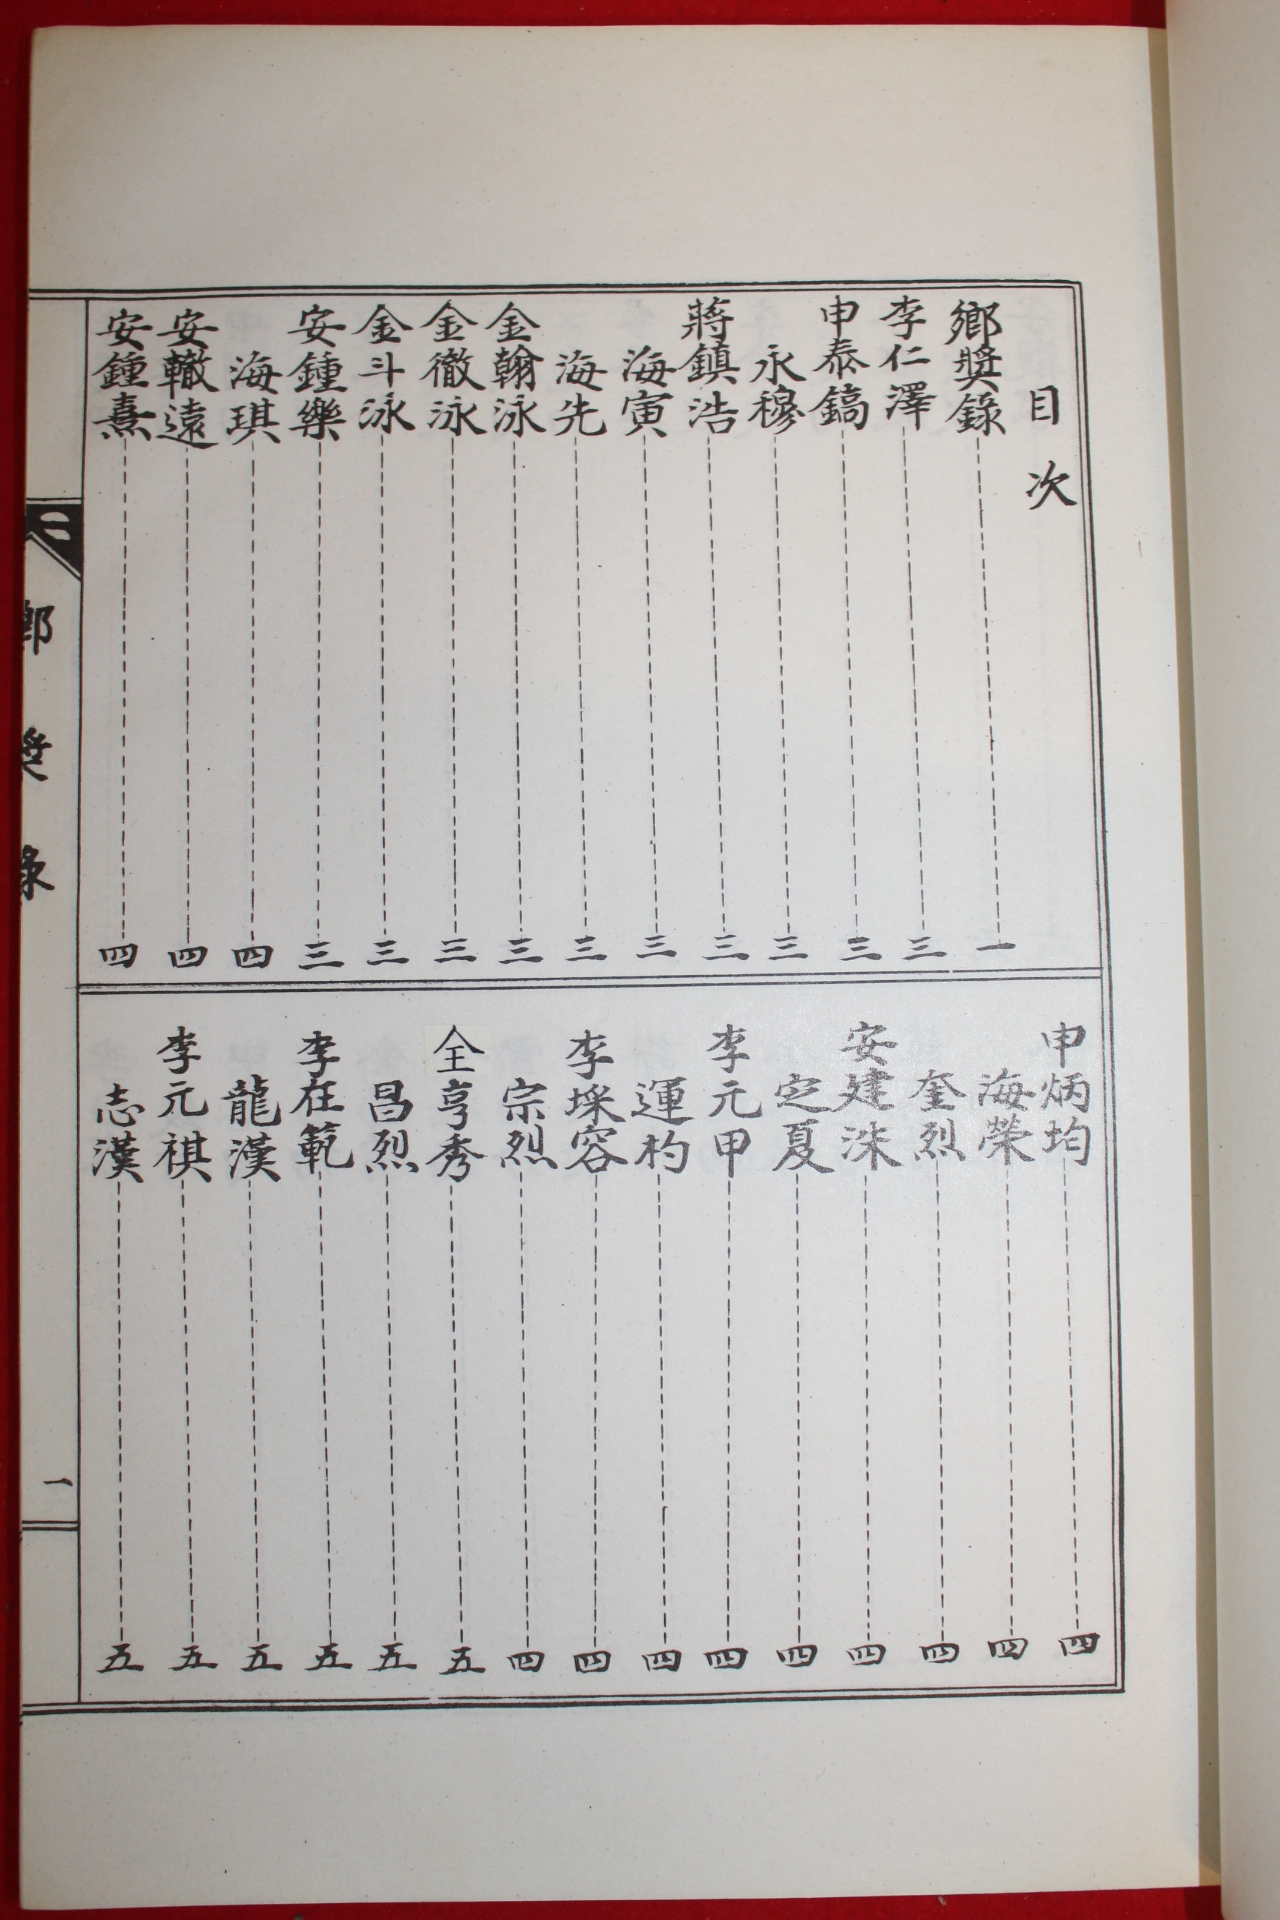 目次
鄉奬錄 一
李仁澤 三
申泰鎬 三
永穆 三
蔣鎮浩 三
海寅 三
海先 三
金翰泳 三
金徹泳 三
金斗泳 三
安鍾樂 三
海琪 四
安轍遠 四
安鍾熹 四
申炳均 四
海榮 四
奎烈 四
安建洙 四
定夏 四
李元甲 四
運杓 四
李埰容 四
宗烈 四
全亨秀 五
昌烈 五
李在範 五
龍漢 五
李元祺 五
志漢 五
鄉奬錄 一